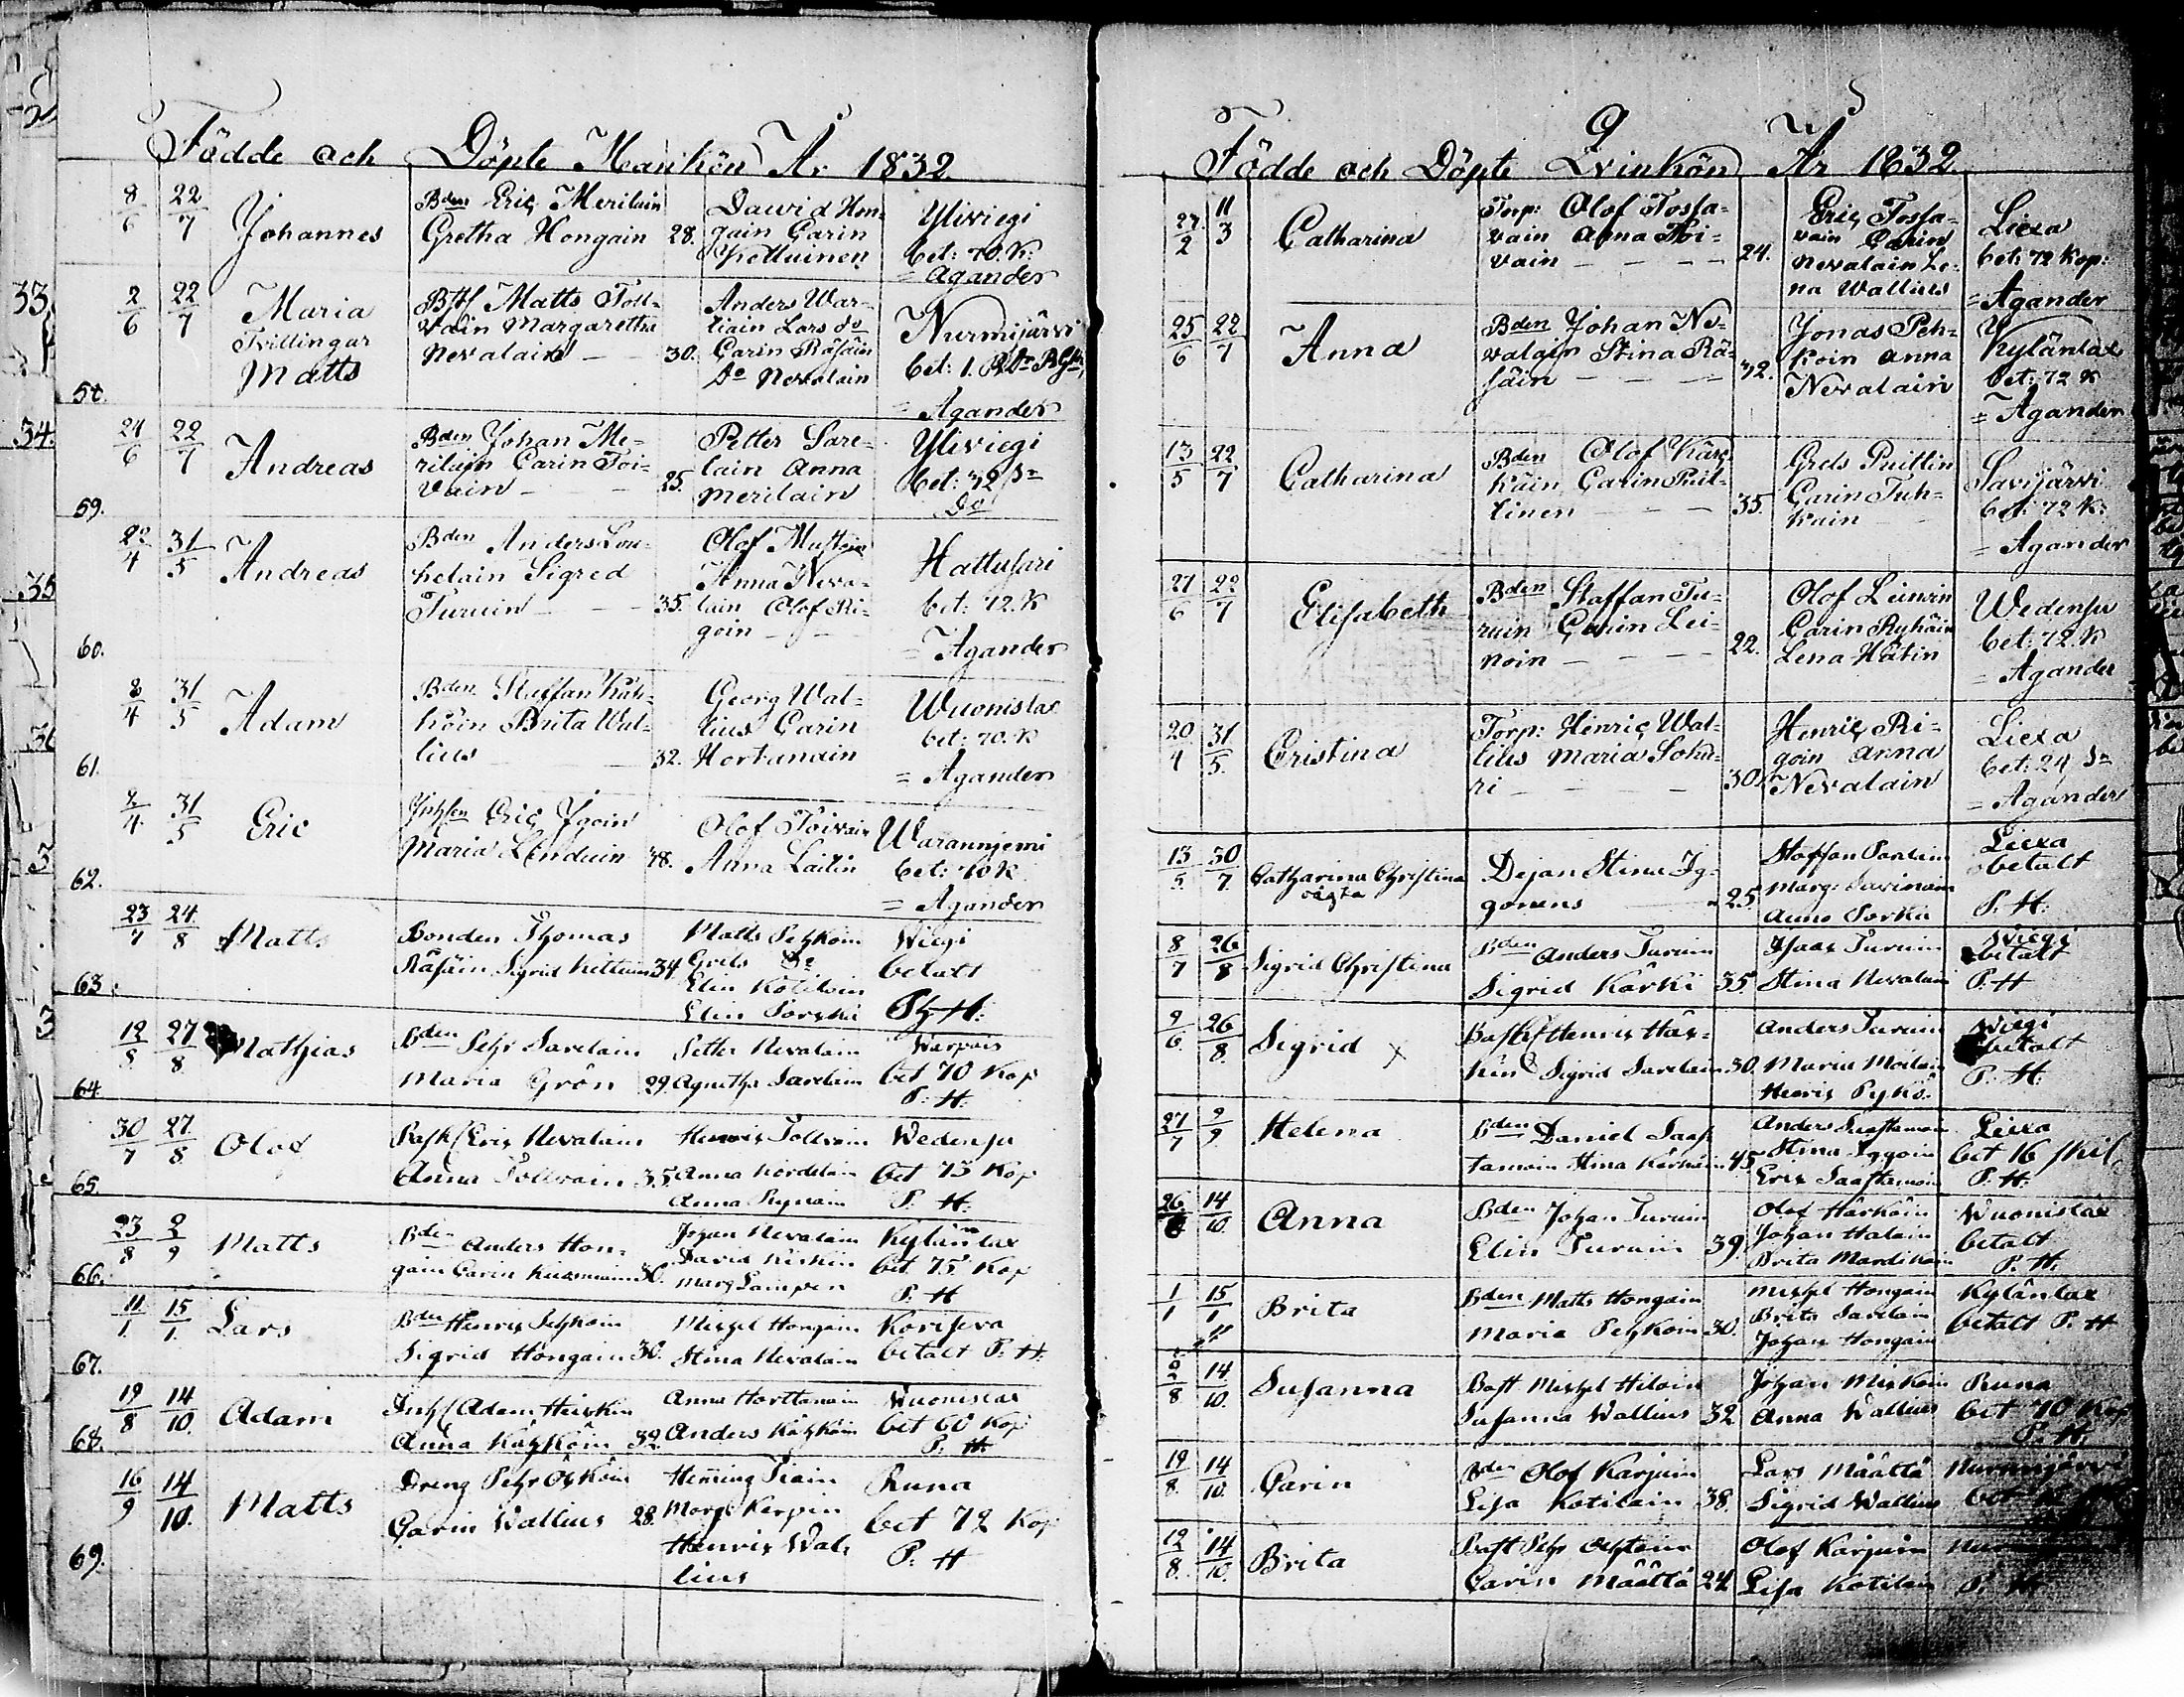 Födde och Döpte Mankön År 1832
8/6 22/7 Johannes Bden Eric Merilain
Gretha Hongain 28. Dawid Hon-
gain Carin
Kettuinen
Yliviegi
bet: 70. K.
= Agander
2/6 22/7 Maria
Tvillingar
Matts
Matts Toll-
vain Margaretha
Nevalain — 30.
Anders War-
tiain Lars do
Carin Räsäin
do Nevalain
Nurmijärvi
bet: 1.
= Agander
24/6 22/7 Andreas
59.
Bden Johan Me-
rilain Carin Toi-
vain — 25.
Petter Sare-
lain Anna
Merilain
Yliviegi
bet: 72 do
do
22/4 31/5 Andreas
60.
Bden Anders Lou-
helain Sigred
Turuin — 35.
Olof Mustoin
Anna Neva-
lain Olof Ri-
goin —
Hattusari
bet: 72. K
= Agander
2/4 31/5 Adam
61.
Bden Staffan Käh-
köin Brita Wal-
lius 32.
Georg Wal-
lius Carin
Hortanain
Wuonislax
bet: 70. K
= Agander
2/4 31/5 Eric
62.
Eric Igoin
Maria Lenduin 38.
Olof Toivain
Anna Laitin
Warannjemi
bet: 70 K
= Agander
23/7 24/8 Matts
63.
Bonden Thomas
Räsäin Sigrid Kettuin 34
Matts Pehkoin
Grels do
Elin Kotilain
Elin Sorsha
Wiegi
betalt
P. H.
12/8 27/8 Mathias
64.
Bden Pehr Sarelain
Maria Grön 29
Petter Nevalain
Agnetha Sarelain
Warpais
bet 70 Kop
P. H.
30/7 27/8 Olof
65.
Eric Nevalain
Anna Tollvain 35
Henric Tollvain
Anna Kordelain
Anna Ryynain
Wedensu
bet 75 Kop
P. H.
23/8 2/9 Matts
66.
Bden Anders Hon-
gain Carin Kuosmain 30.
Johan Nevalain
David Kiiskin
Marg Lampen
Kylänlax
bet 75 Kop
P. H
11/1 15/1 Lars
67.
Bden Henric Pehkoin
Sigrid Hongain 30.
Michel Hongain
Stina Nevalain
Korisewa
betalt P. H.
19/8 14/10 Adam
68.
Inh Adam Heiskin
Anna Kähköin 32
Anna Harttanain
Anders Kähköin
Wuonislax
bet 60 Kop
P. H.
16/9 14/10 Matts
69.
Dreng Pehr
Carin Wallius 28
Henning Tiain
Marg: Karpin
Henric Wal-
lius
Runa
bet 72 Kop
P. H
Födde och Döpte Qvinkön År 1832
27/2 11/3 Catharina
Torp: Olof Tossa-
vain Anna Toi-
vain — 24.
Eric Tossa-
vain Carin
Nevalain Le-
na Wallius
Liexa
bet: 72 Kop:
= Agander
25/6 22/7 Anna
Bden Johan Ne-
valain Stina Rä-
säin — 42.
Jonas Peh-
koin Anna
Nevalain
Kylänlax
bet: 72 K
= Agander
13/5 22/7 Catharina
Bden Olof Kärk-
käin Carin Puit-
tinen — 35.
Grels Puittin
Carin Tuh-
kain
Savijärvi
bet: 72 K:
= Agander
27/6 22/7 Elisabeth
Bden Staffan Tu-
ruin Carin Lei-
noin — 22.
Olof Leinoin
Carin Ryhäin
Lena Hätin
Wedensu
bet: 72. K
= Agander
20/4 31/5 Cristina
Torp: Henric Wal-
lius Maria Soku-
ri — 30.
Henric Ri-
goin Anna
Nevalain
Liexa
bet: 24 do
= Agander
13/5 30/7 Catharina Christina
oägta
Dejan Stina Ig-
gonens — 25
Staffan Parviain
Marg: Savinain
Anna Sorsa
Liexa
betalt
P. H.
8/7 26/8 Sigrid Christina
Bden Anders Turuin
Sigrid Kärki 35.
Isaac Turuin
Stina Nevalain
Wiegi
betalt
P. H
9/6 26/8 Sigrid x
Henric Här-
kin Sigrid Sarelain 30
Anders Turuin
Maria Moilain
Henric Pykö
Wiegi
betalt
P. H.
27/7 2/9 Helena
Bden Daniel Saas-
tamoin Stina Kärkäin 45
Anders Saastamoin
Stina Iggoin
Eric Saastamoin
Liexa
bet 16 skil
P. H.
26/6 14/10 Anna
Bden Johan Turuin
Elin Turuin 39.
Olof Härköin
Johan Halain
Brita Mardikain
Wuonislax
betalt
P. H.
1/1 15/1 Brita
Bden Matts Hongain
Maria Pehkoin 30.
Michel Hongain
Brita Sarelain
Johan Hongain
Kylänlax
betalt P. H
2/8 14/10 Susanna
Michel Hiloin
Susanna Wallius 32
Johan Miskoin
Anna Wallius
Runa
bet 70 Kop
P. H.
19/8 14/10 Carin
Bden Olof Karjuin
Lisa Kotilain 38.
Lars Määttä
Sigrid Wallius
Nurmijärvi
bet
12/8 14/10 Brita
Pehr
Carin Määttä 24
Olof Karjuin
Lisa Kotilain
P. H